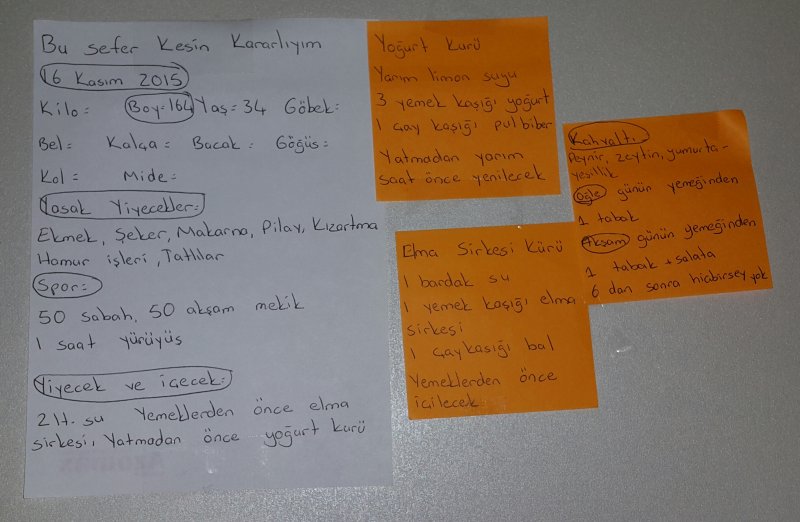 Bu sefer Kesin Kararlıyım
16 Kasım 2015
Kilo= Boy=164 Yaş=34 Göbek=
Bel= Kalça= Bacak= Göğüs=
Kol= Mide=
Yasak Yiyecekler=
Ekmek, Şeker, Makarna, Pilav, Kızartma
Hamur işleri, Tatlılar
Spor=
50 sabah, 50 akşam mekik
1 saat yürüyüş
Yiyecek ve içecek=
2 lt. su Yemeklerden önce elma
sirkesi, Yatmadan önce yoğurt kürü
Yoğurt Kürü
Yarım limon suyu
3 yemek kaşığı yoğurt
1 çay kaşığı pulbiber
Yatmadan yarım
saat önce yenilecek
Elma Sirkesi Kürü
1 bardak su
1 yemek kaşığı elma
sirkesi
1 çaykaşığı bal
Yemeklerden önce
içilecek
Kahvaltı
Peynir, zeytin, yumurta-
yeşillik
Öğle günün yemeğinden
1 tabak
Akşam günün yemeğinden
1 tabak + salata
6 dan sonra hiçbirşey yok